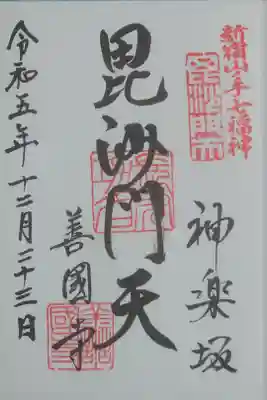 新宿山ノ手七福神
神楽坂
毘沙門天
善國寺
令和五年十二月二十三日